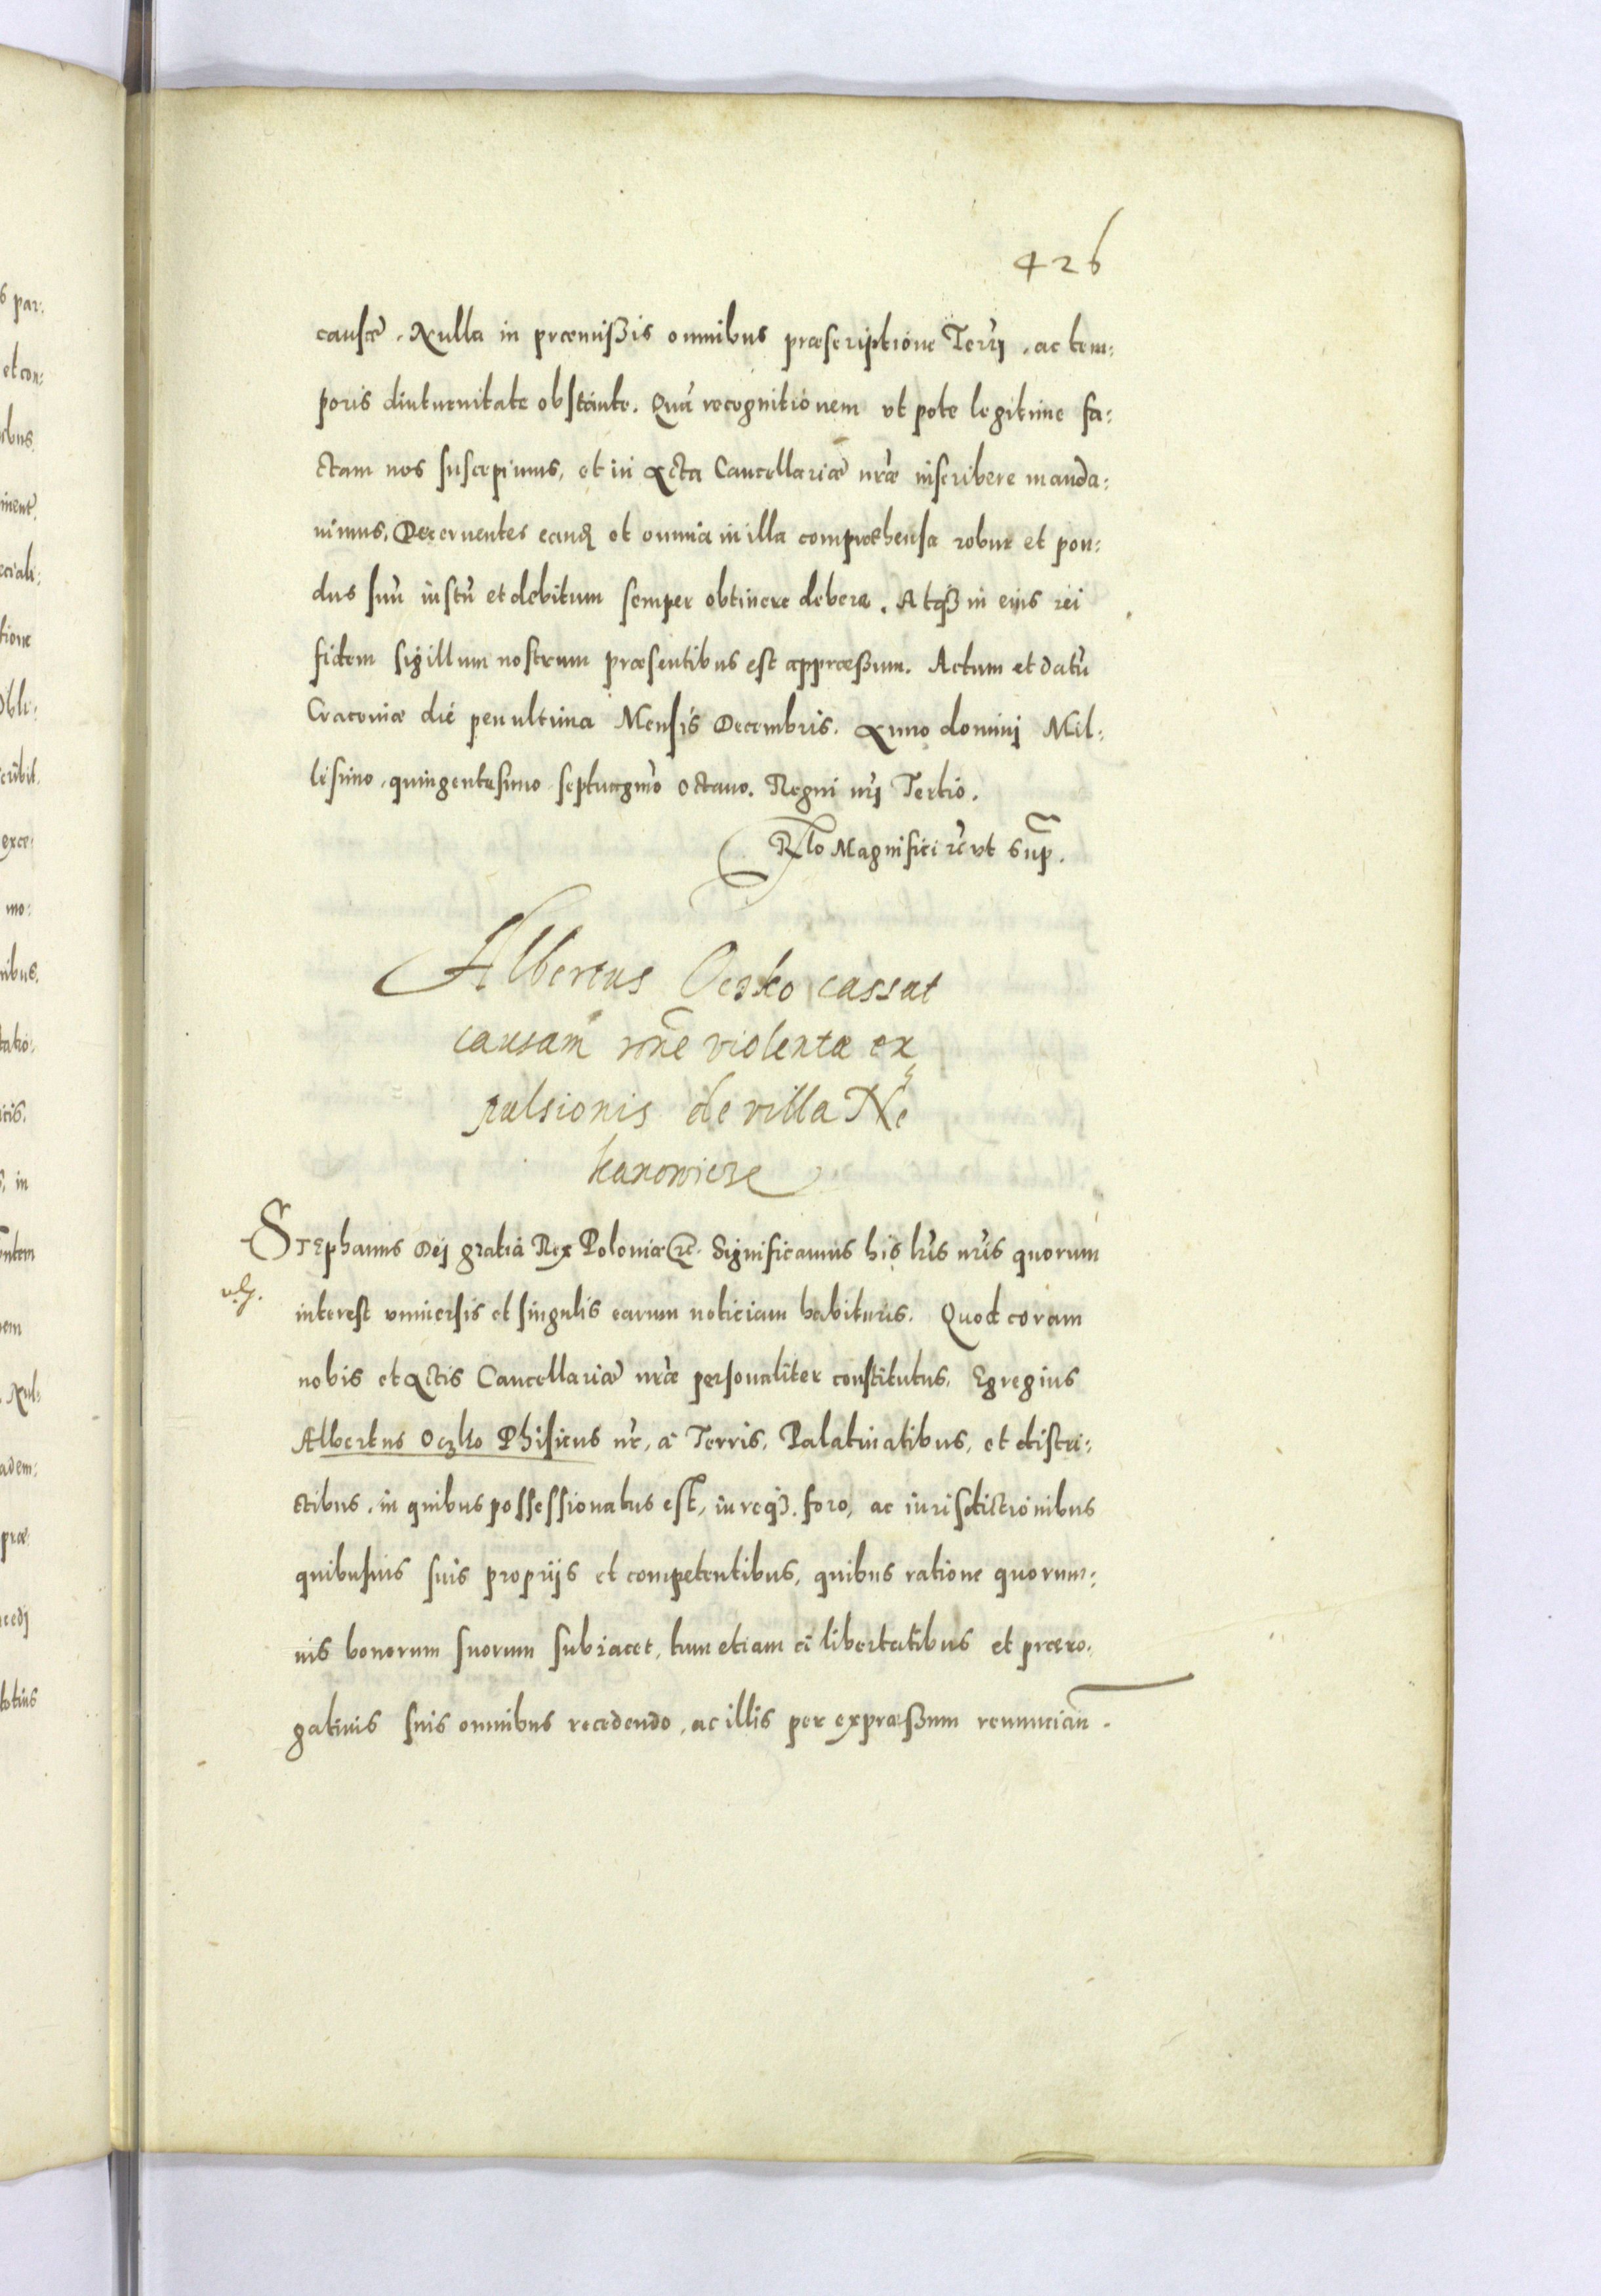 426
causæ. Nulla in præmißis omnibus præscriptione Terrj, ac tem:
poris diuturnitate obstante. Quã recognitionem ut pote legitime fa:
ctam nos suscepimus, et in Acta Cancellariæ nr̃æ inscribere manda:
uimus. Decernentes eand̃ et omnia in illa comprehensa robur et pon:
dus suũ iustũ et debitum semper obtinere debere. Atq3 in eius rei
fidem sigillum nostrum præsentibus est appræßum. Actum et datũ
Cracouiæ die penultima Mensis Decembris. Anno dominj Mil:
lesimo quingentesimo septuagm̃o octauo. Regni nr̃j Tertio.
Rlo Magnifici rc̃ ut sup̃.
Albertus Oczko cassat
causam rõne violentæ ex
pulsionis de villa Ne
kanowicze
Stephanus Dej gratia Rex Poloniæ rc̃. Significamus his lr̃is nr̃is quorum
interest vniuersis et singulis earum noticiam habituris. Quod coram
nobis et Actis Cancellariæ nr̃æ personaliter constitutus, Egregius
Albertus Oczko Phisicus nr̃, a Terris, Palatinatibus, et distri:
ctibus, in quibus possessionatus est, iureq3, foro, ac iurisdictionibus
quibusuis suis proprijs et competentibus, quibus ratione quorum:
uis bonorum suorum subiacet, tum etiam a libertatibus et præro:
gatiuis suis omnibus recedendo, ac illis per expræßum renuncian̄.
s par:
et con:
ibus
eciali:
tione
obli:
exce:
mo:
nibus.
, in
em
Nul:
adem:
præ:
totius